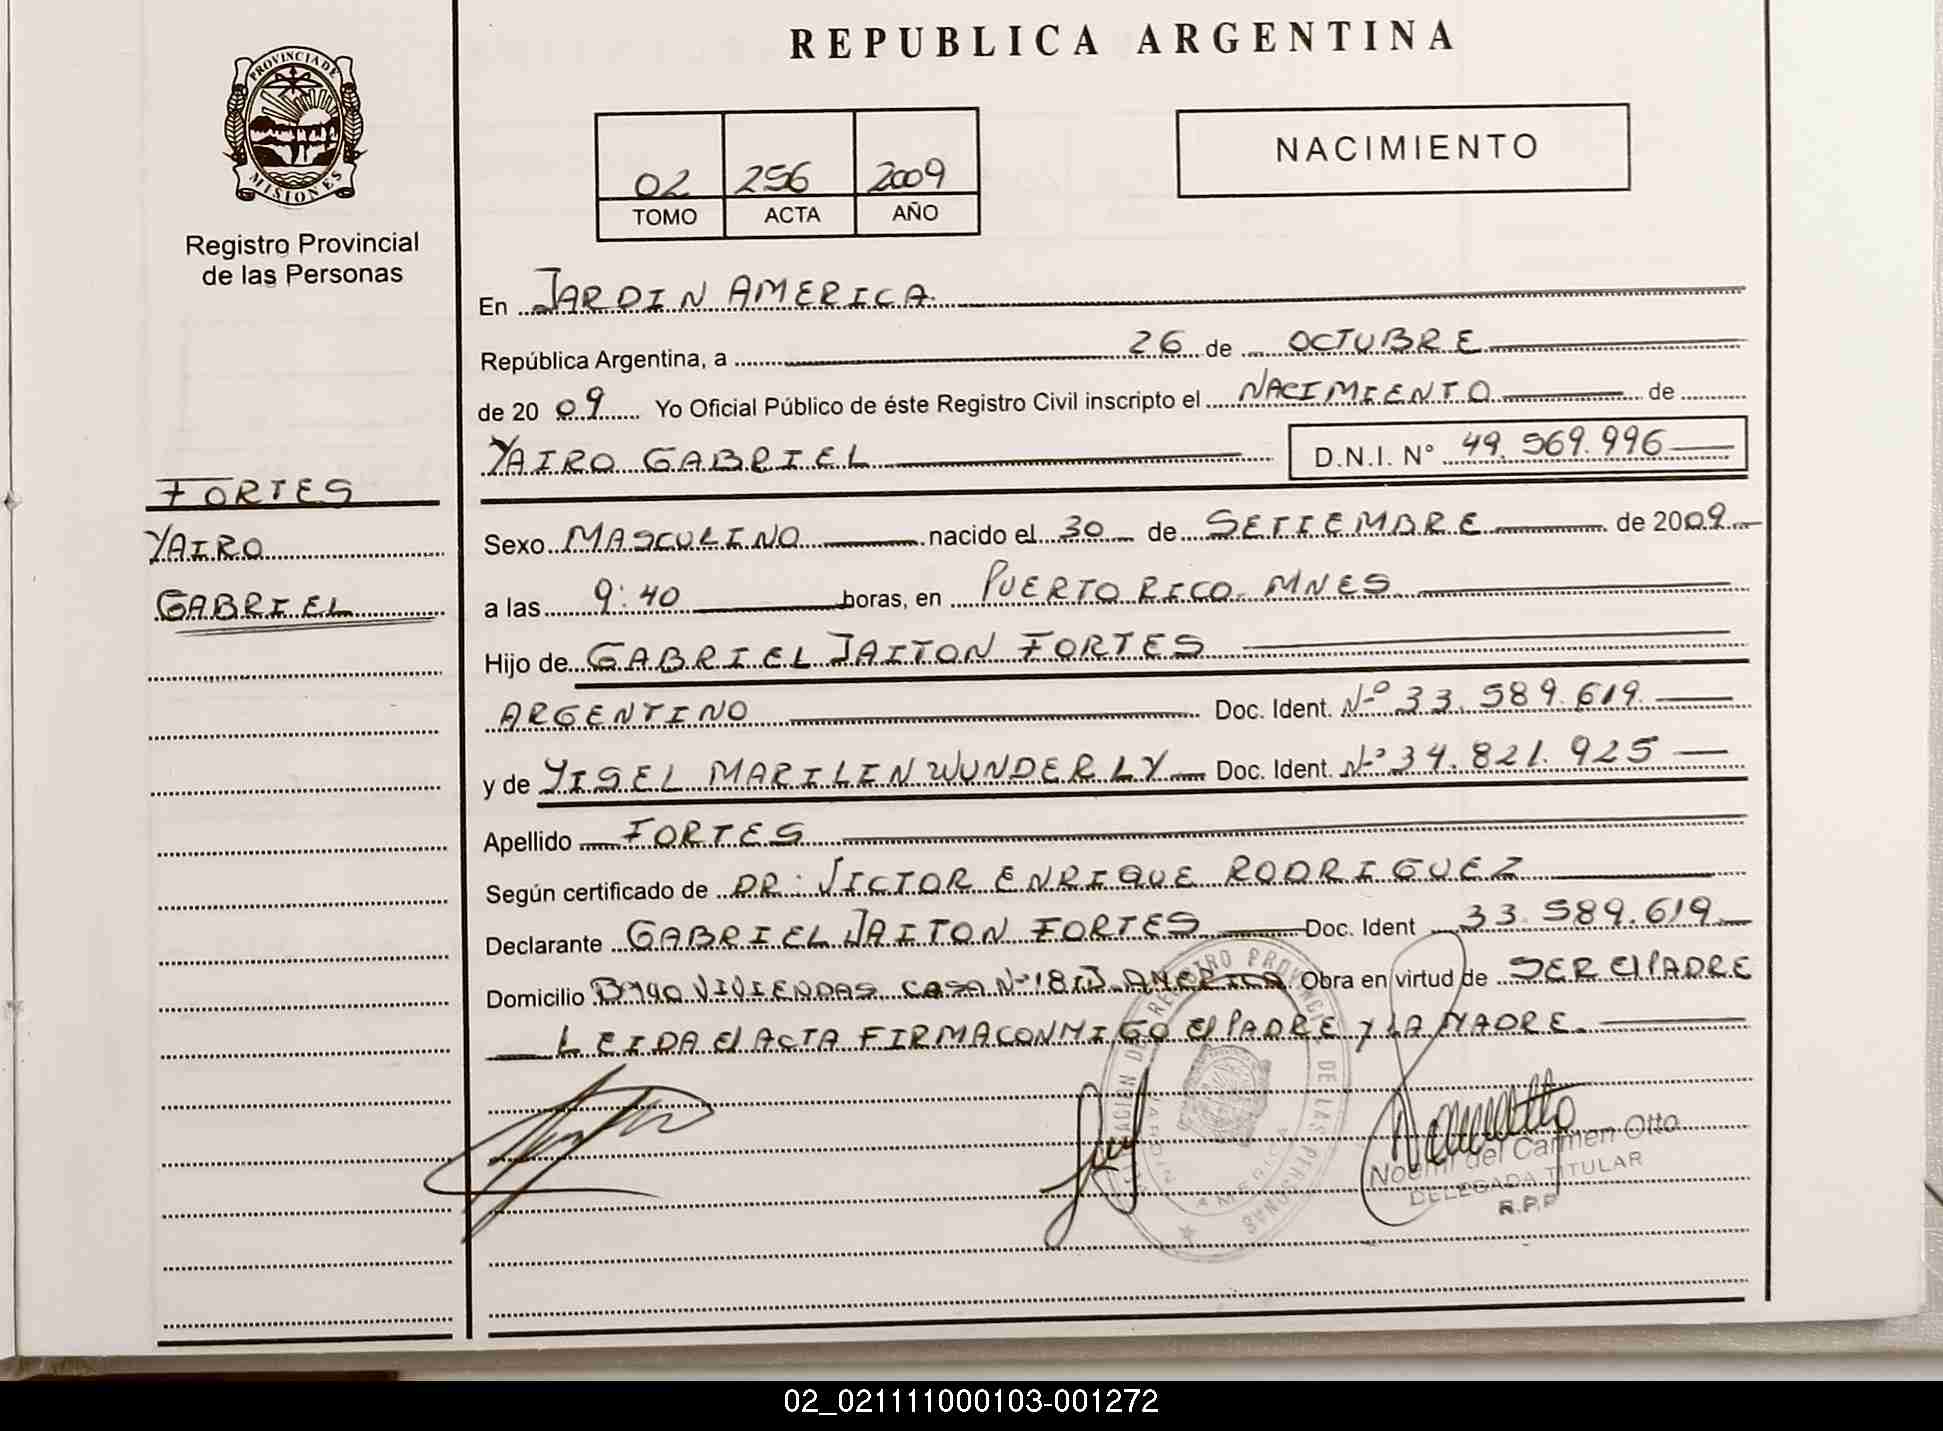 REPUBLICA ARGENTINA
PROVINCIA DE
MISIONES
Registro Provincial
de las Personas
02 256 2009
TOMO ACTA AÑO
NACIMIENTO
En JARDIN AMERICA
República Argentina, a 26 de OCTUBRE
de 2009 Yo Oficial Público de éste Registro Civil inscripto el NACIMIENTO de
YAIRO GABRIEL D.N.I. N° 49.569.996
FORTES
YAIRO
GABRIEL
Sexo MASCULINO nacido el 30 de SETIEMBRE de 2009
a las 9:40 horas, en PUERTO RICO - MNES
Hijo de GABRIEL JAITON FORTES
ARGENTINO Doc. Ident. N° 33.589.619
y de YISEL MARILIN WUNDERLY Doc. Ident. N° 34.821.925
Apellido FORTES
Según certificado de DR: VICTOR ENRIQUE RODRIGUEZ
Declarante GABRIEL JAITON FORTES Doc. Ident 33.589.619
Domicilio B° 140 VIVIENDAS CASA N° 18 J. AMERICA Obra en virtud de SER El PADRE
LEIDA El ACTA FIRMA CONMIGO El PADRE Y LA MADRE.
REGISTRO PROVINCIAL DE LAS PERSONAS
JARDIN AMERICA
Noemi del Carmen Otto
DELEGADA TITULAR
R.P.P
02_021111000103-001272